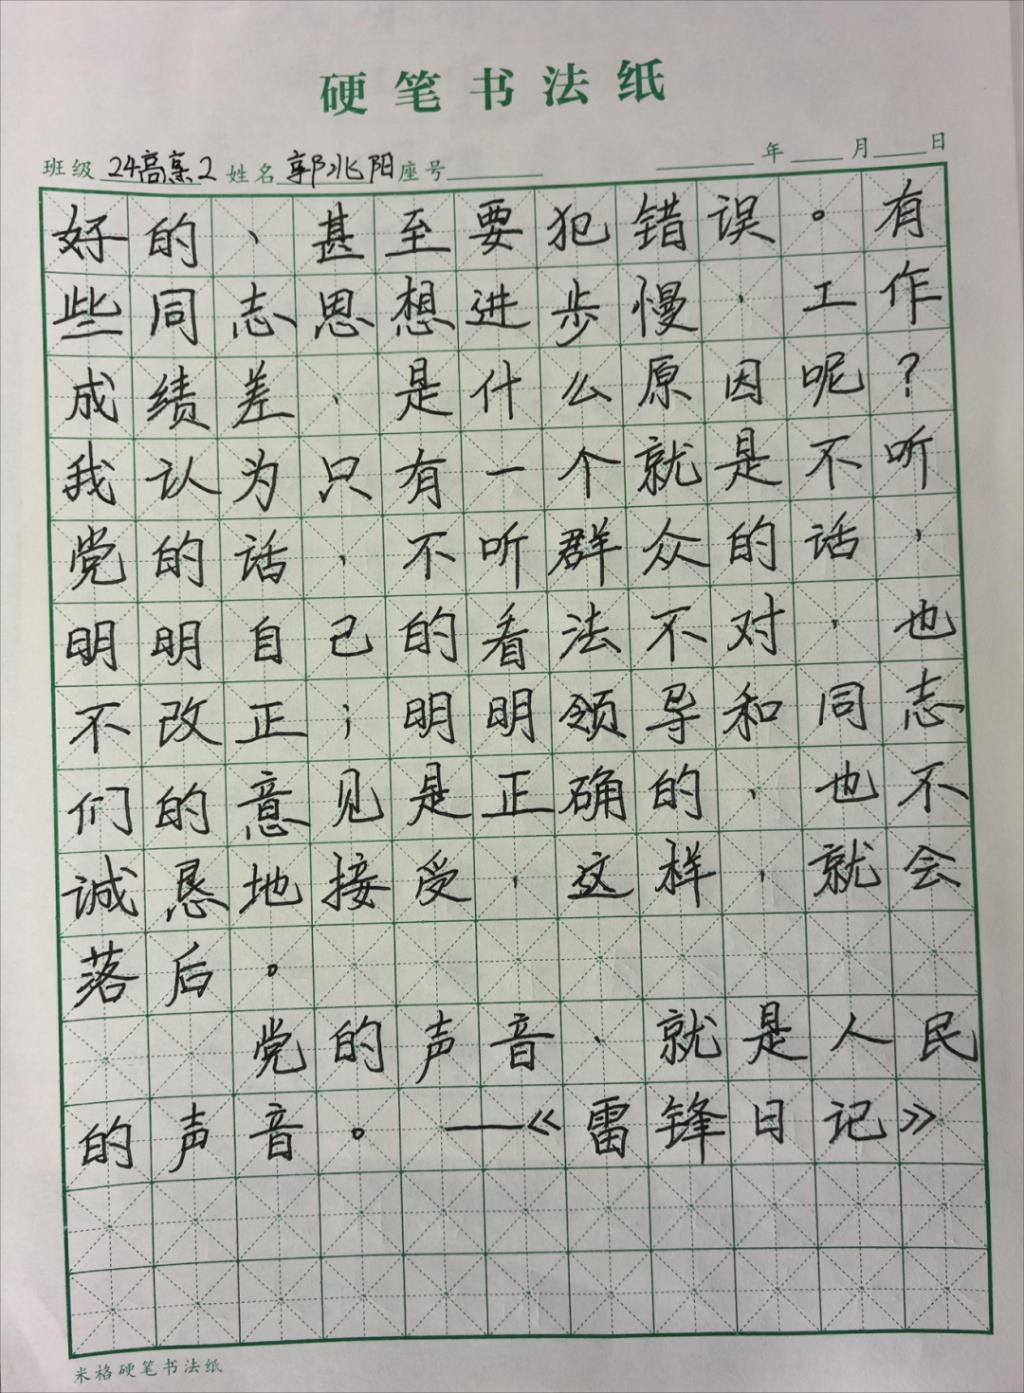 硬笔书法纸
班级 24高烹2 姓名 郭兆阳 座号 年 月 日
好的、甚至要犯错误。有
些同志思想进步慢，工作
成绩差，是什么原因呢？
我认为只有一个就是不听
党的话，不听群众的话，
明明自己的看法不对，也
不改正；明明领导和同志
们的意见是正确的，也不
诚恳地接受，这样，就会
落后。
党的声音、就是人民
的声音。——《雷锋日记》
米格硬笔书法纸